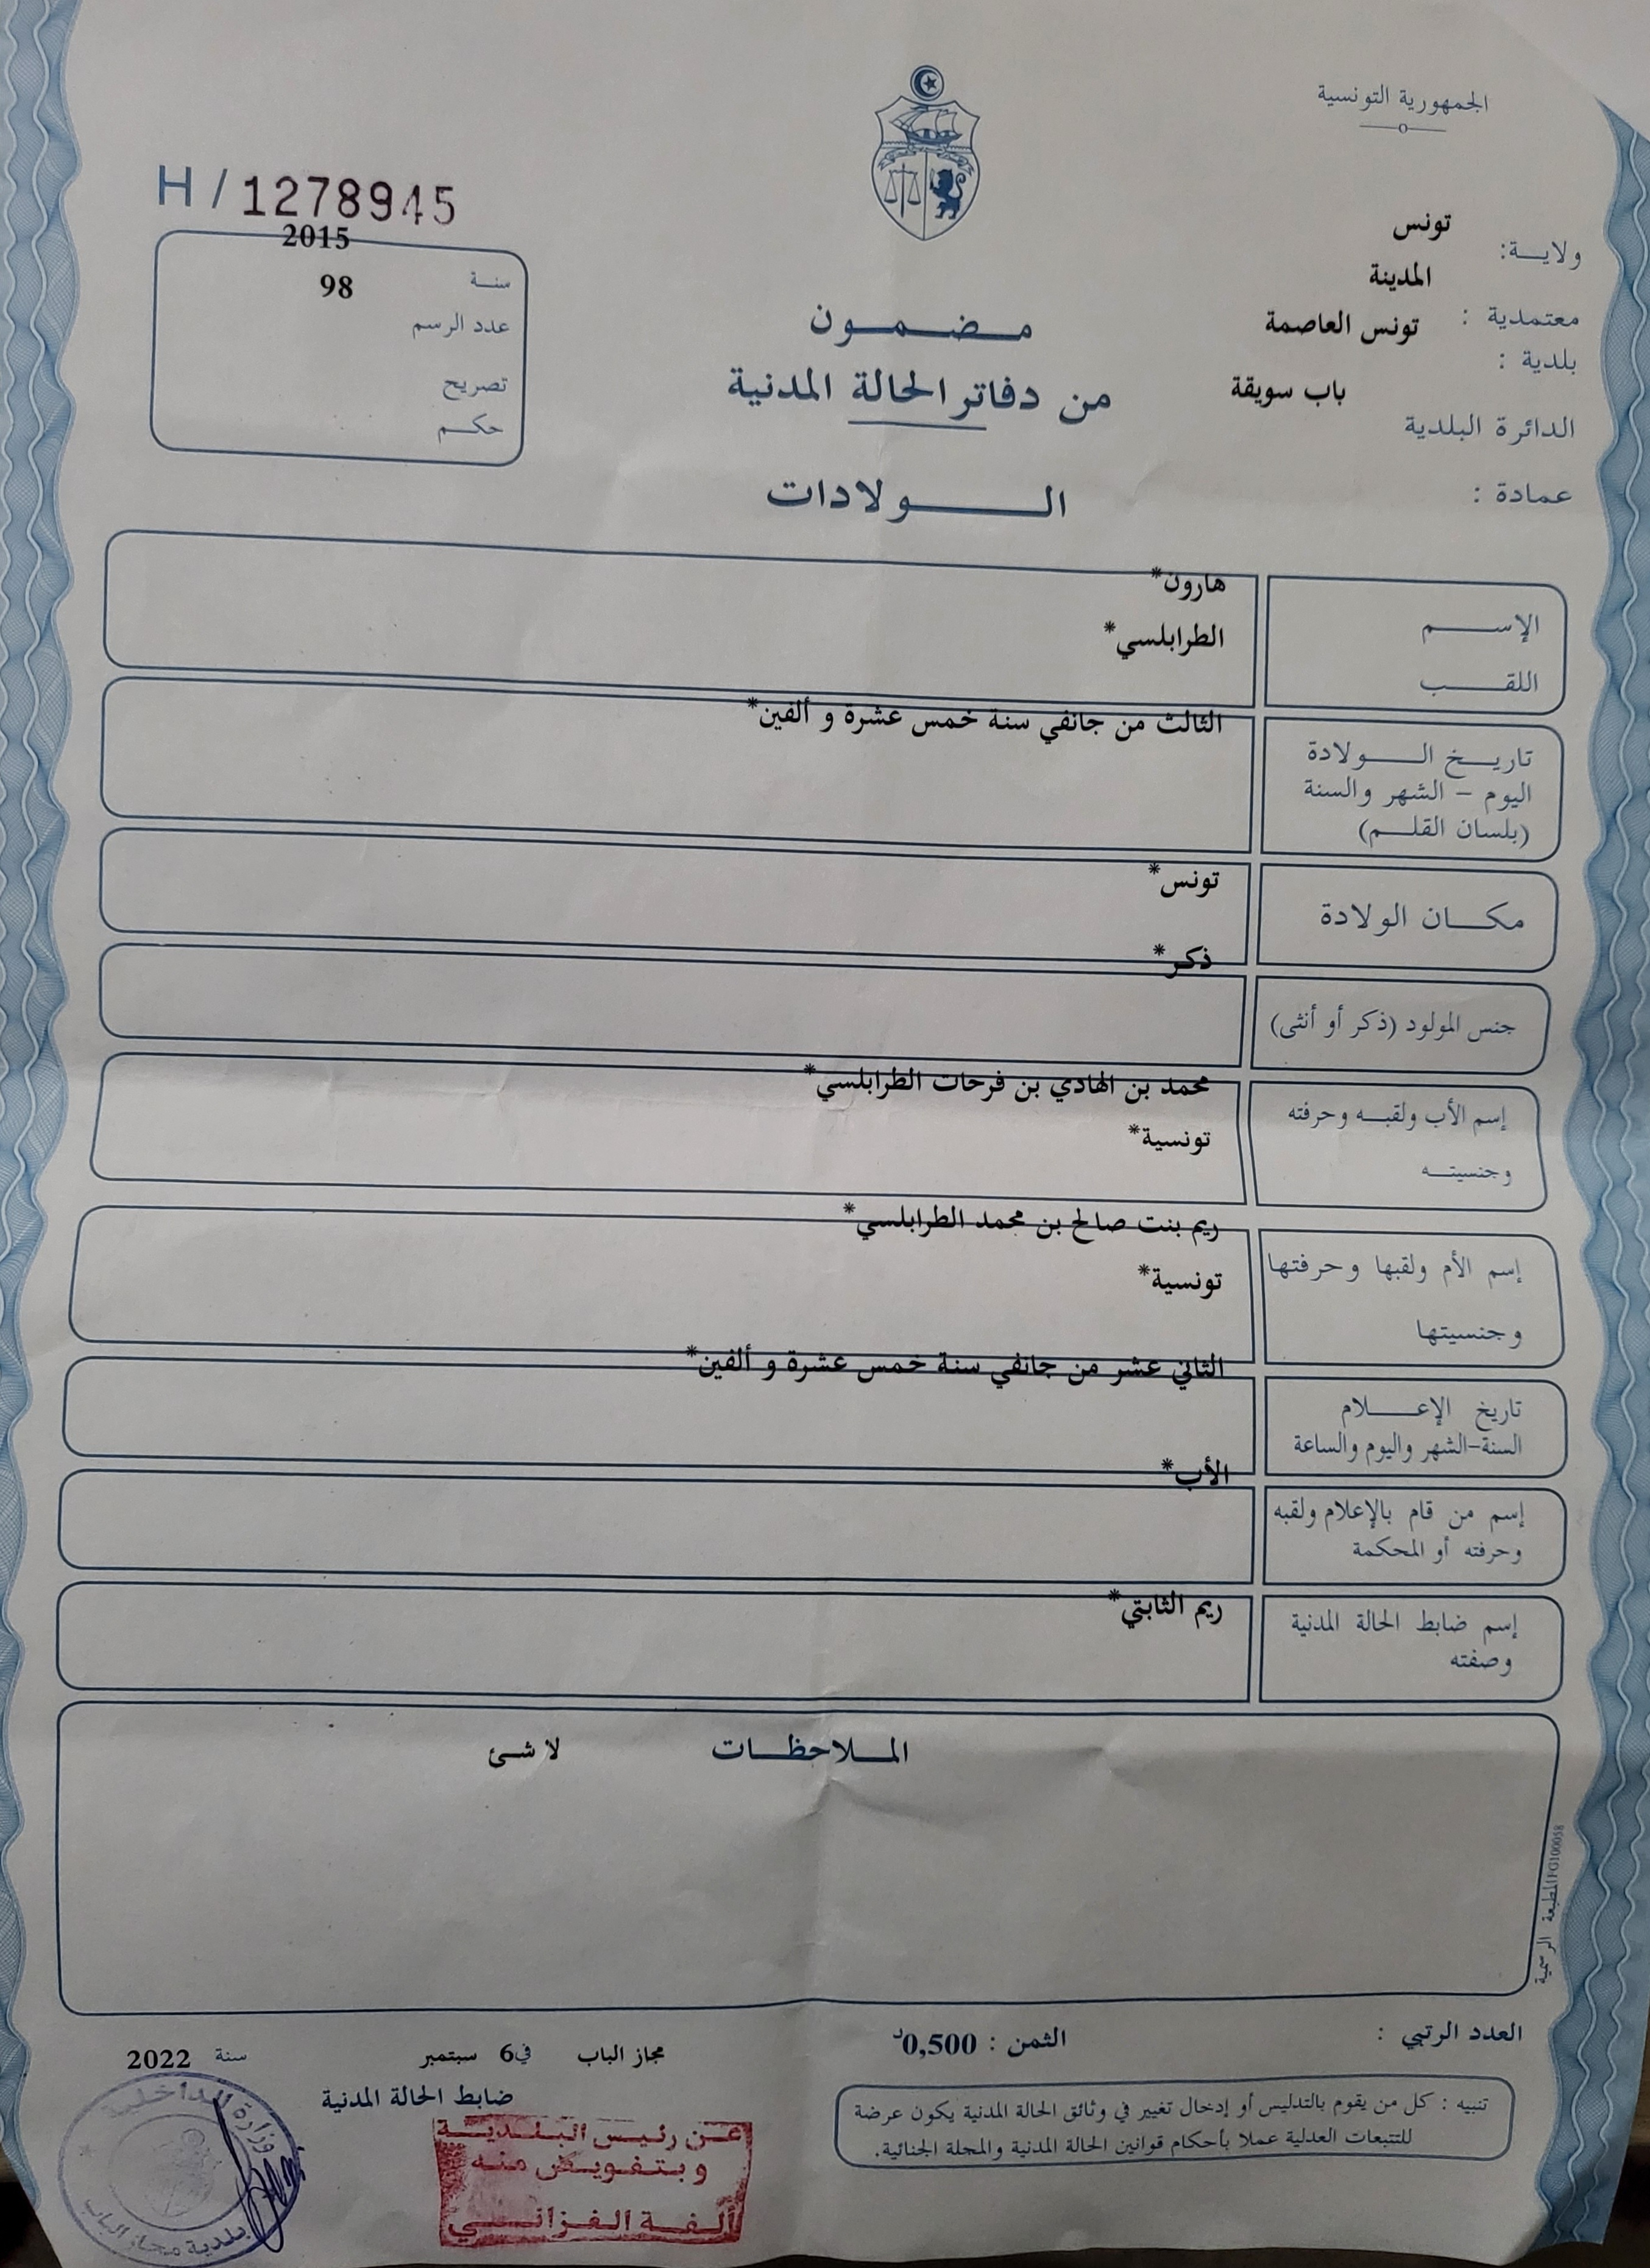 الجمهورية التونسية
H / 1278945
ولاية: تونس
المدينة
معتمدية :
تونس العاصمة
بلدية :
باب سويقة
الدائرة البلدية
عمادة :
2015
سنة
98
عدد الرسم
تصريح
حكم
مضمون
من دفاتر الحالة المدنية
الولادات
هارون*
الإسم
الطرابلسي*
اللقب
الثالث من جانفي سنة خمس عشرة و ألفين*
تاريخ الولادة
اليوم - الشهر والسنة
(بلسان القلم)
تونس*
مكان الولادة
ذكر*
جنس المولود (ذكر أو أنثى)
محمد بن الهادي بن فرحات الطرابلسي*
إسم الأب ولقبه وحرفته
تونسية*
وجنسيته
ريم بنت صالح بن محمد الطرابلسي*
إسم الأم ولقبها وحرفتها
تونسية*
وجنسيتها
الثاني عشر من جانفي سنة خمس عشرة و ألفين*
تاريخ الإعلام
السنة-الشهر واليوم والساعة
الأب*
إسم من قام بالإعلام ولقبه
وحرفته أو المحكمة
ريم الثابتي*
إسم ضابط الحالة المدنية
وصفته
الملاحظات لا شئ
المطبعة الرسمية FG100058
العدد الرتبي :
الثمن : 0,500د
مجاز الباب في 6 سبتمبر سنة 2022
ضابط الحالة المدنية
تنبيه : كل من يقوم بالتدليس أو إدخال تغيير في وثائق الحالة المدنية يكون عرضة
للتتبعات العدلية عملا بأحكام قوانين الحالة المدنية والمجلة الجنائية.
عن رئيس البلدية
وبتفويض منه
ألفة الغزاني
وزارة الداخلية
بلدية مجاز الباب